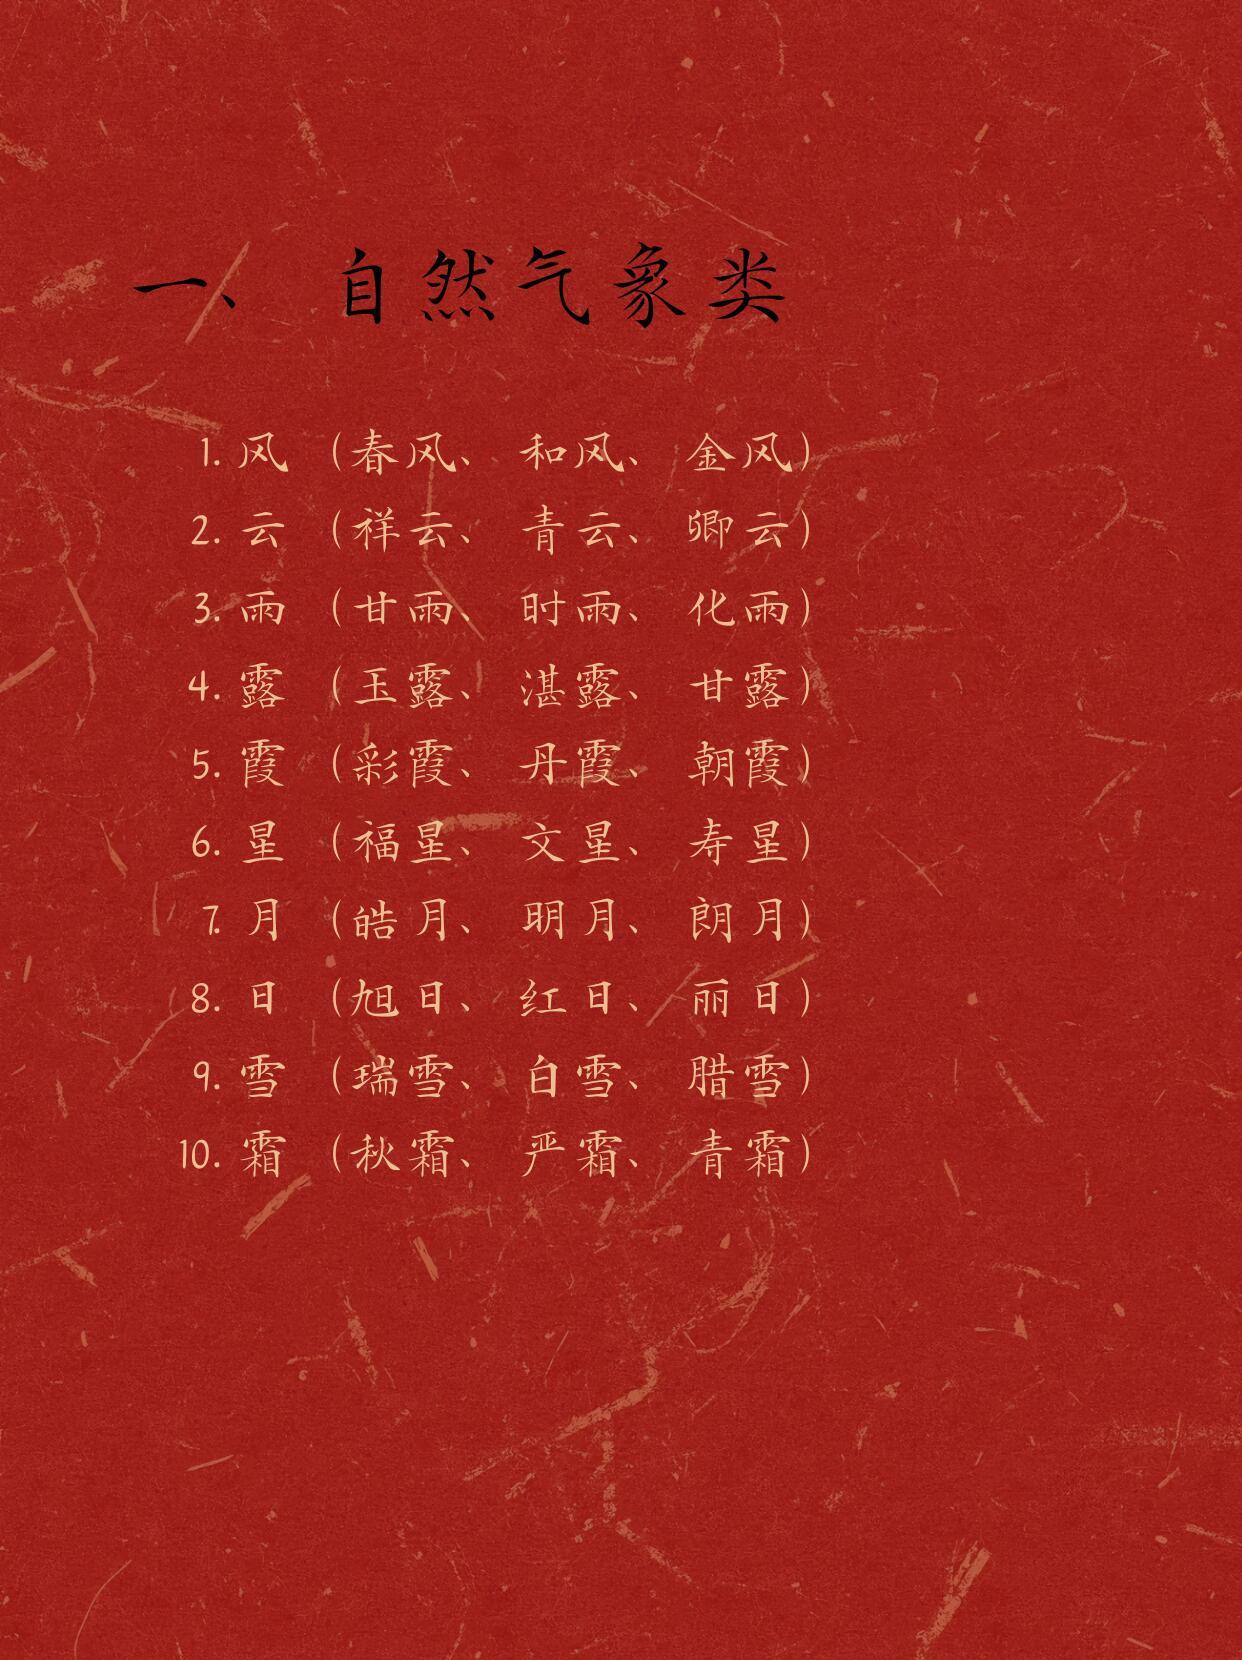 一、 自然气象类
1. 风 （春风、 和风、 金风）
2. 云 （祥云、 青云、 卿云）
3. 雨 （甘雨、 时雨、 化雨）
4. 露 （玉露、 湛露、 甘露）
5. 霞 （彩霞、 丹霞、 朝霞）
6. 星 （福星、 文星、 寿星）
7. 月 （皓月、 明月、 朗月）
8. 日 （旭日、 红日、 丽日）
9. 雪 （瑞雪、 白雪、 腊雪）
10. 霜 （秋霜、 严霜、 青霜）